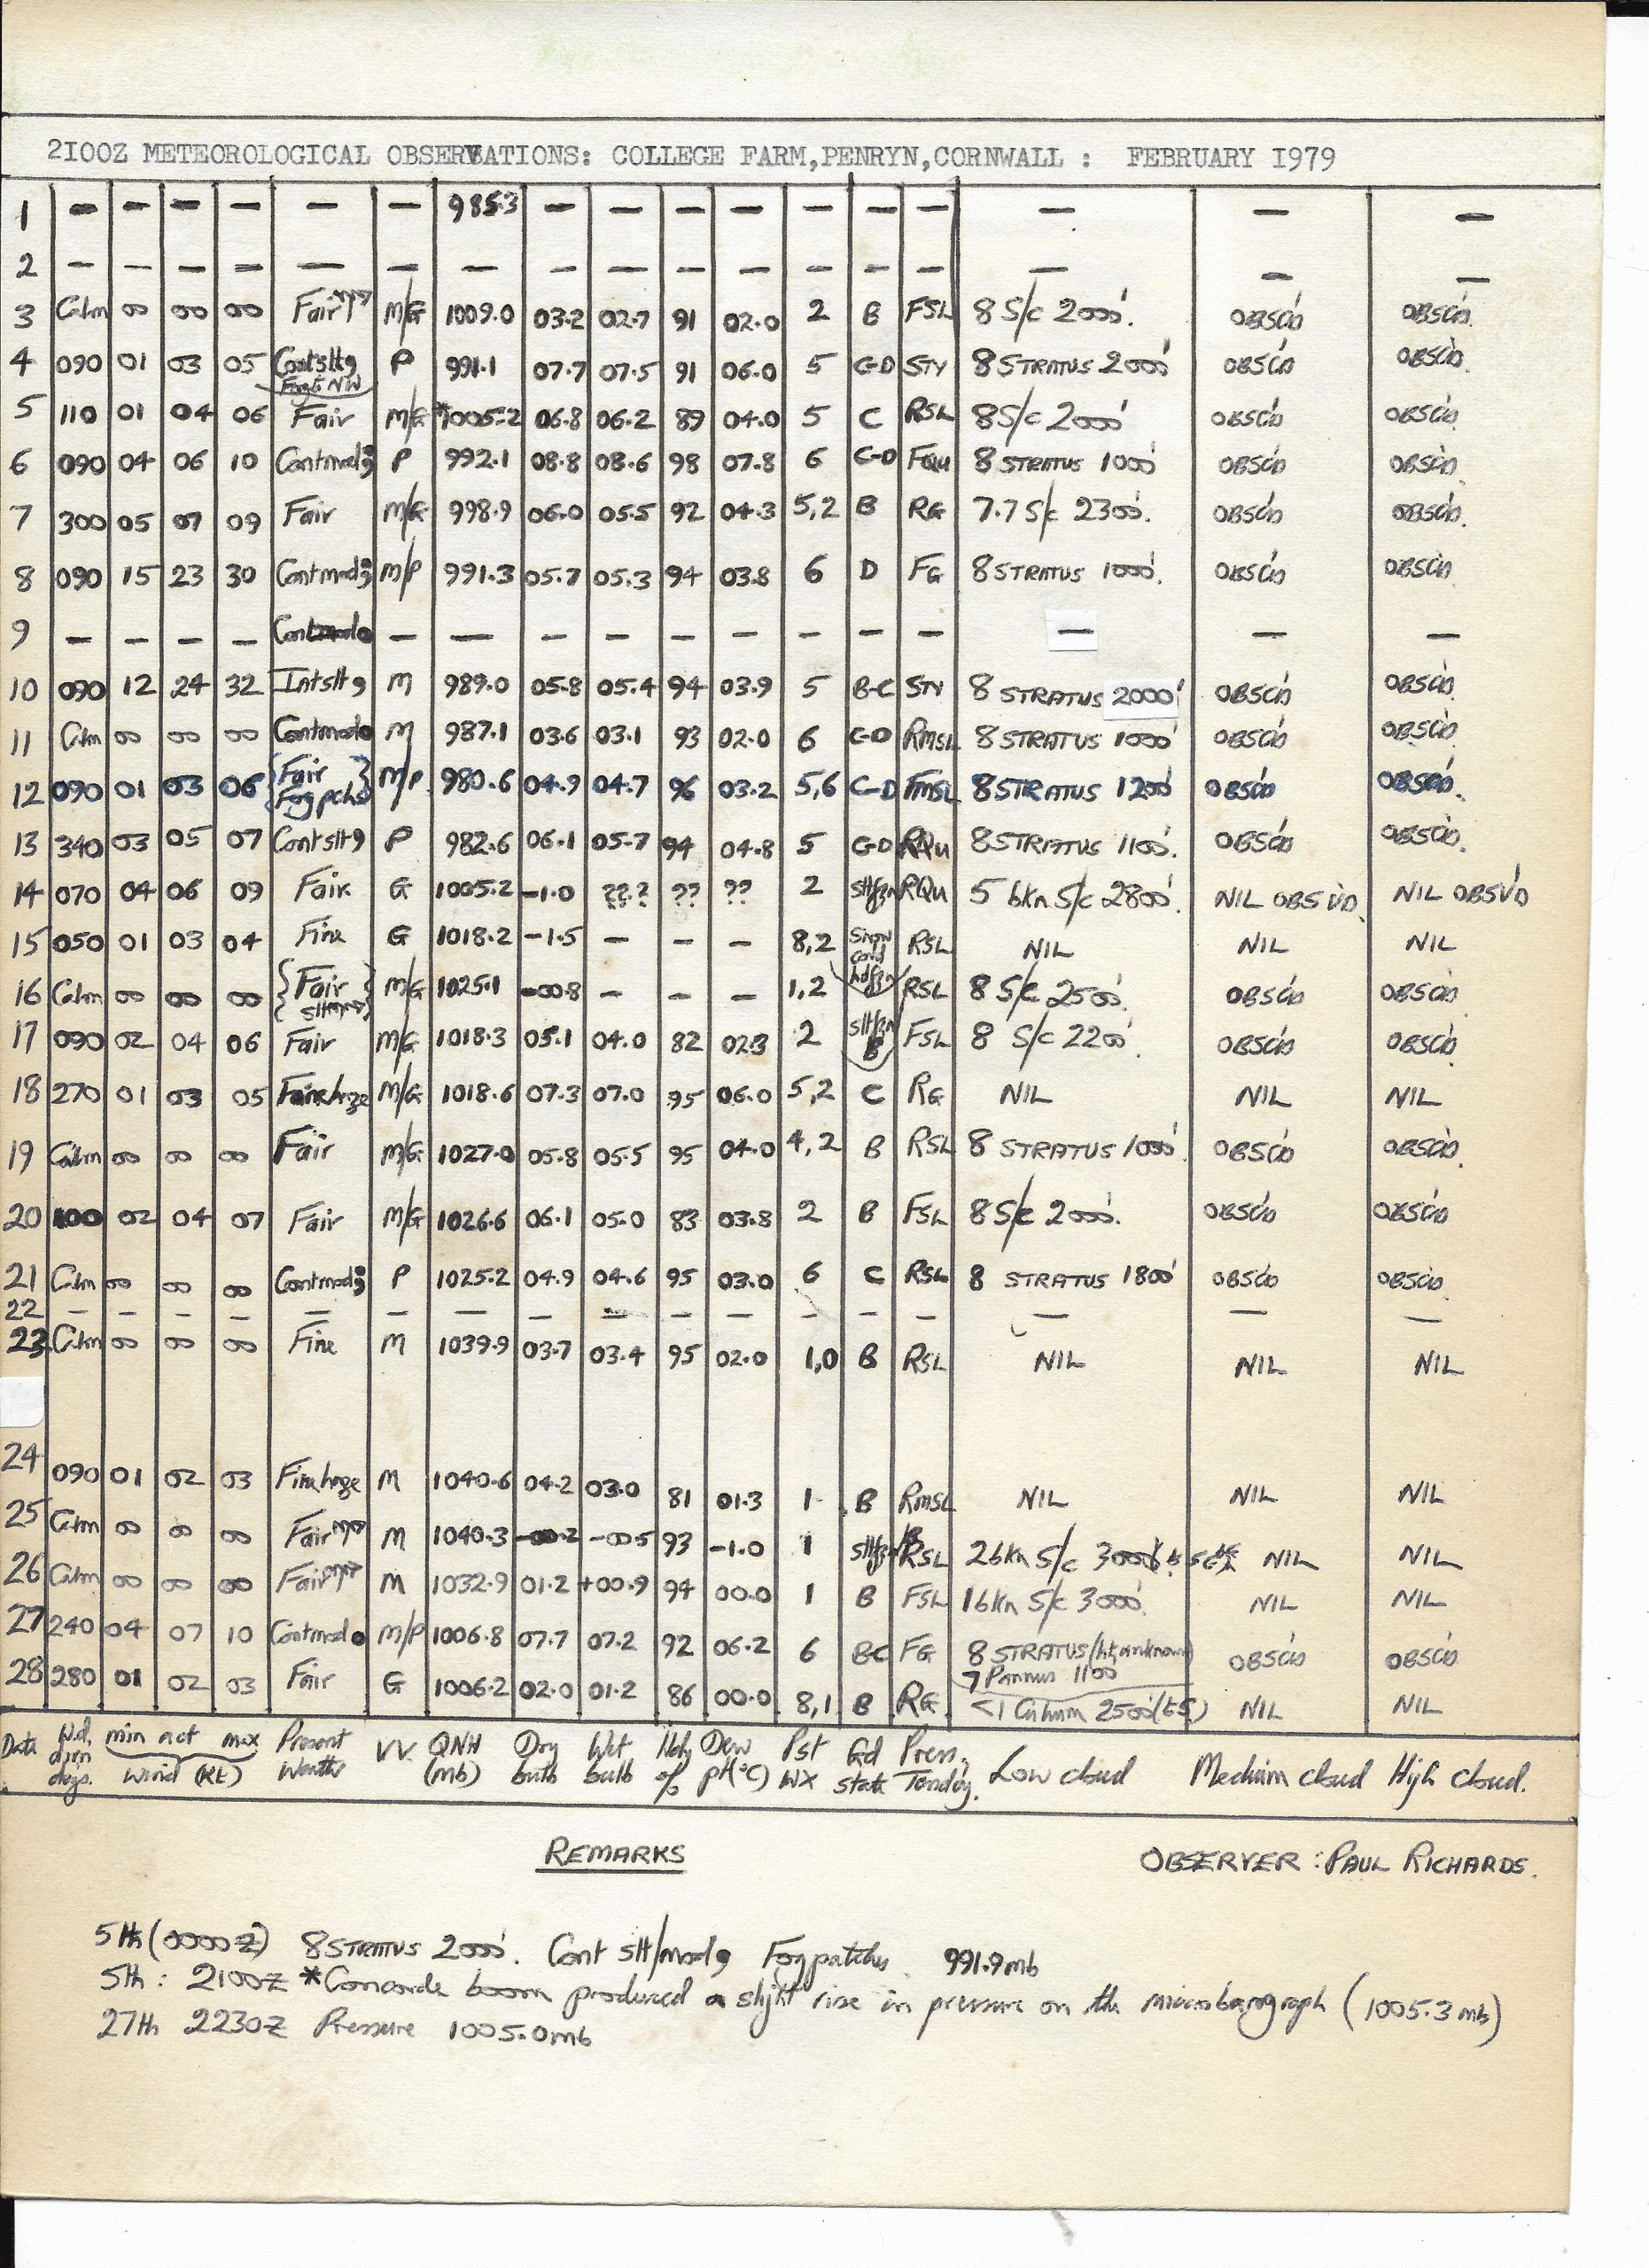 2100Z METEOROLOGICAL OBSERVATIONS: COLLEGE FARM,PENRYN,CORNWALL : FEBRUARY 1979
1 — — — — — — 985.3 — — — — — — — — — —
2 — — — — — — — — — — — — — — — — —
3 Calm 00 00 00 Fair M/G 1009.0 03.2 02.7 91 02.0 2 B FSL 8 S/c 2000'. OBSC'D OBSC'D.
4 090 01 03 05 Contslt, Fog E NW P 991.1 07.7 07.5 91 06.0 5 C-D STY 8 STRATUS 2000' OBSC'D OBSC'D.
5 110 01 04 06 Fair M/G *1005.2 06.8 06.2 89 04.0 5 C RSL 8 S/c 2000' OBSC'D OBSC'D.
6 090 04 06 10 Contmod; P 992.1 08.8 08.6 98 07.8 6 C-D FQU 8 STRATUS 1000' OBSC'D OBSC'D.
7 300 05 07 09 Fair M/G 998.9 06.0 05.5 92 04.3 5,2 B RG 7.7 S/c 2300'. OBSC'D OBSC'D.
8 090 15 23 30 Contmod; M/P 991.3 05.7 05.3 94 03.8 6 D FG 8 STRATUS 1000'. OBSC'D OBSC'D.
9 — — — — — — — — — — — — — — — —
10 090 12 24 32 Intslt, M 989.0 05.8 05.4 94 03.9 5 B-C STY 8 STRATUS 2000' OBSC'D OBSC'D.
11 Calm 00 00 00 Contmod M 987.1 03.6 03.1 93 02.0 6 C-D RMSL 8 STRATUS 1000' OBSC'D OBSC'D.
12 090 01 03 06 {Fair Fog pchs} M/P 980.6 04.9 04.7 96 03.2 5,6 C-D FMSL 8 STRATUS 1200' OBSC'D OBSC'D.
13 340 03 05 07 Contslt, P 982.6 06.1 05.7 94 04.8 5 C-D RQU 8 STRATUS 1100'. OBSC'D OBSC'D.
14 070 04 06 09 Fair G 1005.2 -1.0 ??.? ?? ?? 2 sltfzn RQU 5 bkn S/c 2800'. NIL OBSV'D NIL OBSV'D
15 050 01 03 04 Fine G 1018.2 -1.5 — — — 8,2 Snow cond RSL NIL NIL NIL
16 Calm 00 00 00 {Fair} M/G 1025.1 -00.8 — — — 1,2 hdfzn RSL 8 S/c 2500'. OBSC'D OBSC'D
17 090 02 04 06 Fair M/G 1018.3 05.1 04.0 82 02.3 2 sltfzn B FSL 8 S/c 2200'. OBSC'D OBSC'D
18 270 01 03 05 Finehaze M/G 1018.6 07.3 07.0 95 06.0 5,2 C RG NIL NIL NIL
19 Calm 00 00 00 Fair M/G 1027.0 05.8 05.5 95 04.0 4,2 B RSL 8 STRATUS 1000'. OBSC'D OBSC'D.
20 100 02 04 07 Fair M/G 1026.6 06.1 05.0 83 03.8 2 B FSL 8 S/c 2000'. OBSC'D OBSC'D
21 Calm 00 00 00 Contmod; P 1025.2 04.9 04.6 95 03.0 6 C RSL 8 STRATUS 1800' OBSC'D OBSC'D
22 — — — — — — — — — — — — — — — — —
23 Calm 00 00 00 Fine M 1039.9 03.7 03.4 95 02.0 1,0 B RSL NIL NIL NIL
24 090 01 02 03 Finehaze M 1040.6 04.2 03.0 81 01.3 1 B RMSL NIL NIL NIL
25 Calm 00 00 00 Fair M 1040.3 -00.2 -00.5 93 -1.0 1 sltfzn RSL 2 bkn S/c 3000' NIL NIL
26 Calm 00 00 00 Fair M 1032.9 01.2 +00.9 94 00.0 1 B FSL 1 bkn S/c 3000'. NIL NIL
27 240 04 07 10 Contmod M/P 1006.8 07.7 07.2 92 06.2 6 BC FG 8 STRATUS (ht unknown) 7 Pannus 1100 OBSC'D OBSC'D
28 280 01 02 03 Fair G 1006.2 02.0 01.2 86 00.0 8,1 B RG <1 Cuhum 2500' NIL NIL
Date Wd. dirn degs. min act max wind (Kt) Present Weather V.V. QNH (mb) Dry bulb Wet bulb Hdy % Dew pt(°C) Pst WX Gd state Press. Tendcy. Low cloud Medium cloud High cloud.
REMARKS
OBSERVER : PAUL RICHARDS.
5th (0000Z) 8 STRATUS 2000'. Cont slt/mod, Fog patches 991.9mb
5th : 2100Z *Concorde boom produced a slight rise in pressure on the microbarograph (1005.3 mb)
27th 2230Z Pressure 1005.0mb